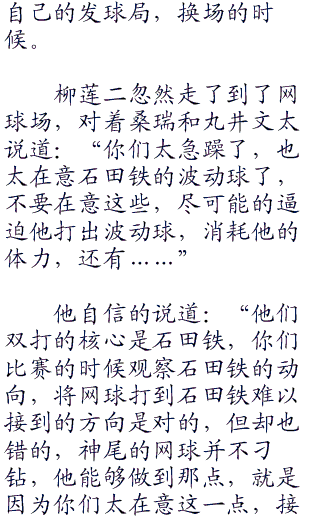 自己的发球局，换场的时
候。
柳莲二忽然走了到了网
球场，对着桑瑞和丸井文太
说道：“你们太急躁了，也
太在意石田铁的波动球了，
不要在意这些，尽可能的逼
迫他打出波动球，消耗他的
体力，还有……”
他自信的说道：“他们
双打的核心是石田铁，你们
比赛的时候观察石田铁的动
向，将网球打到石田铁难以
接到的方向是对的，但却也
错的，神尾的网球并不刁
钻，他能够做到那点，就是
因为你们太在意这一点，接